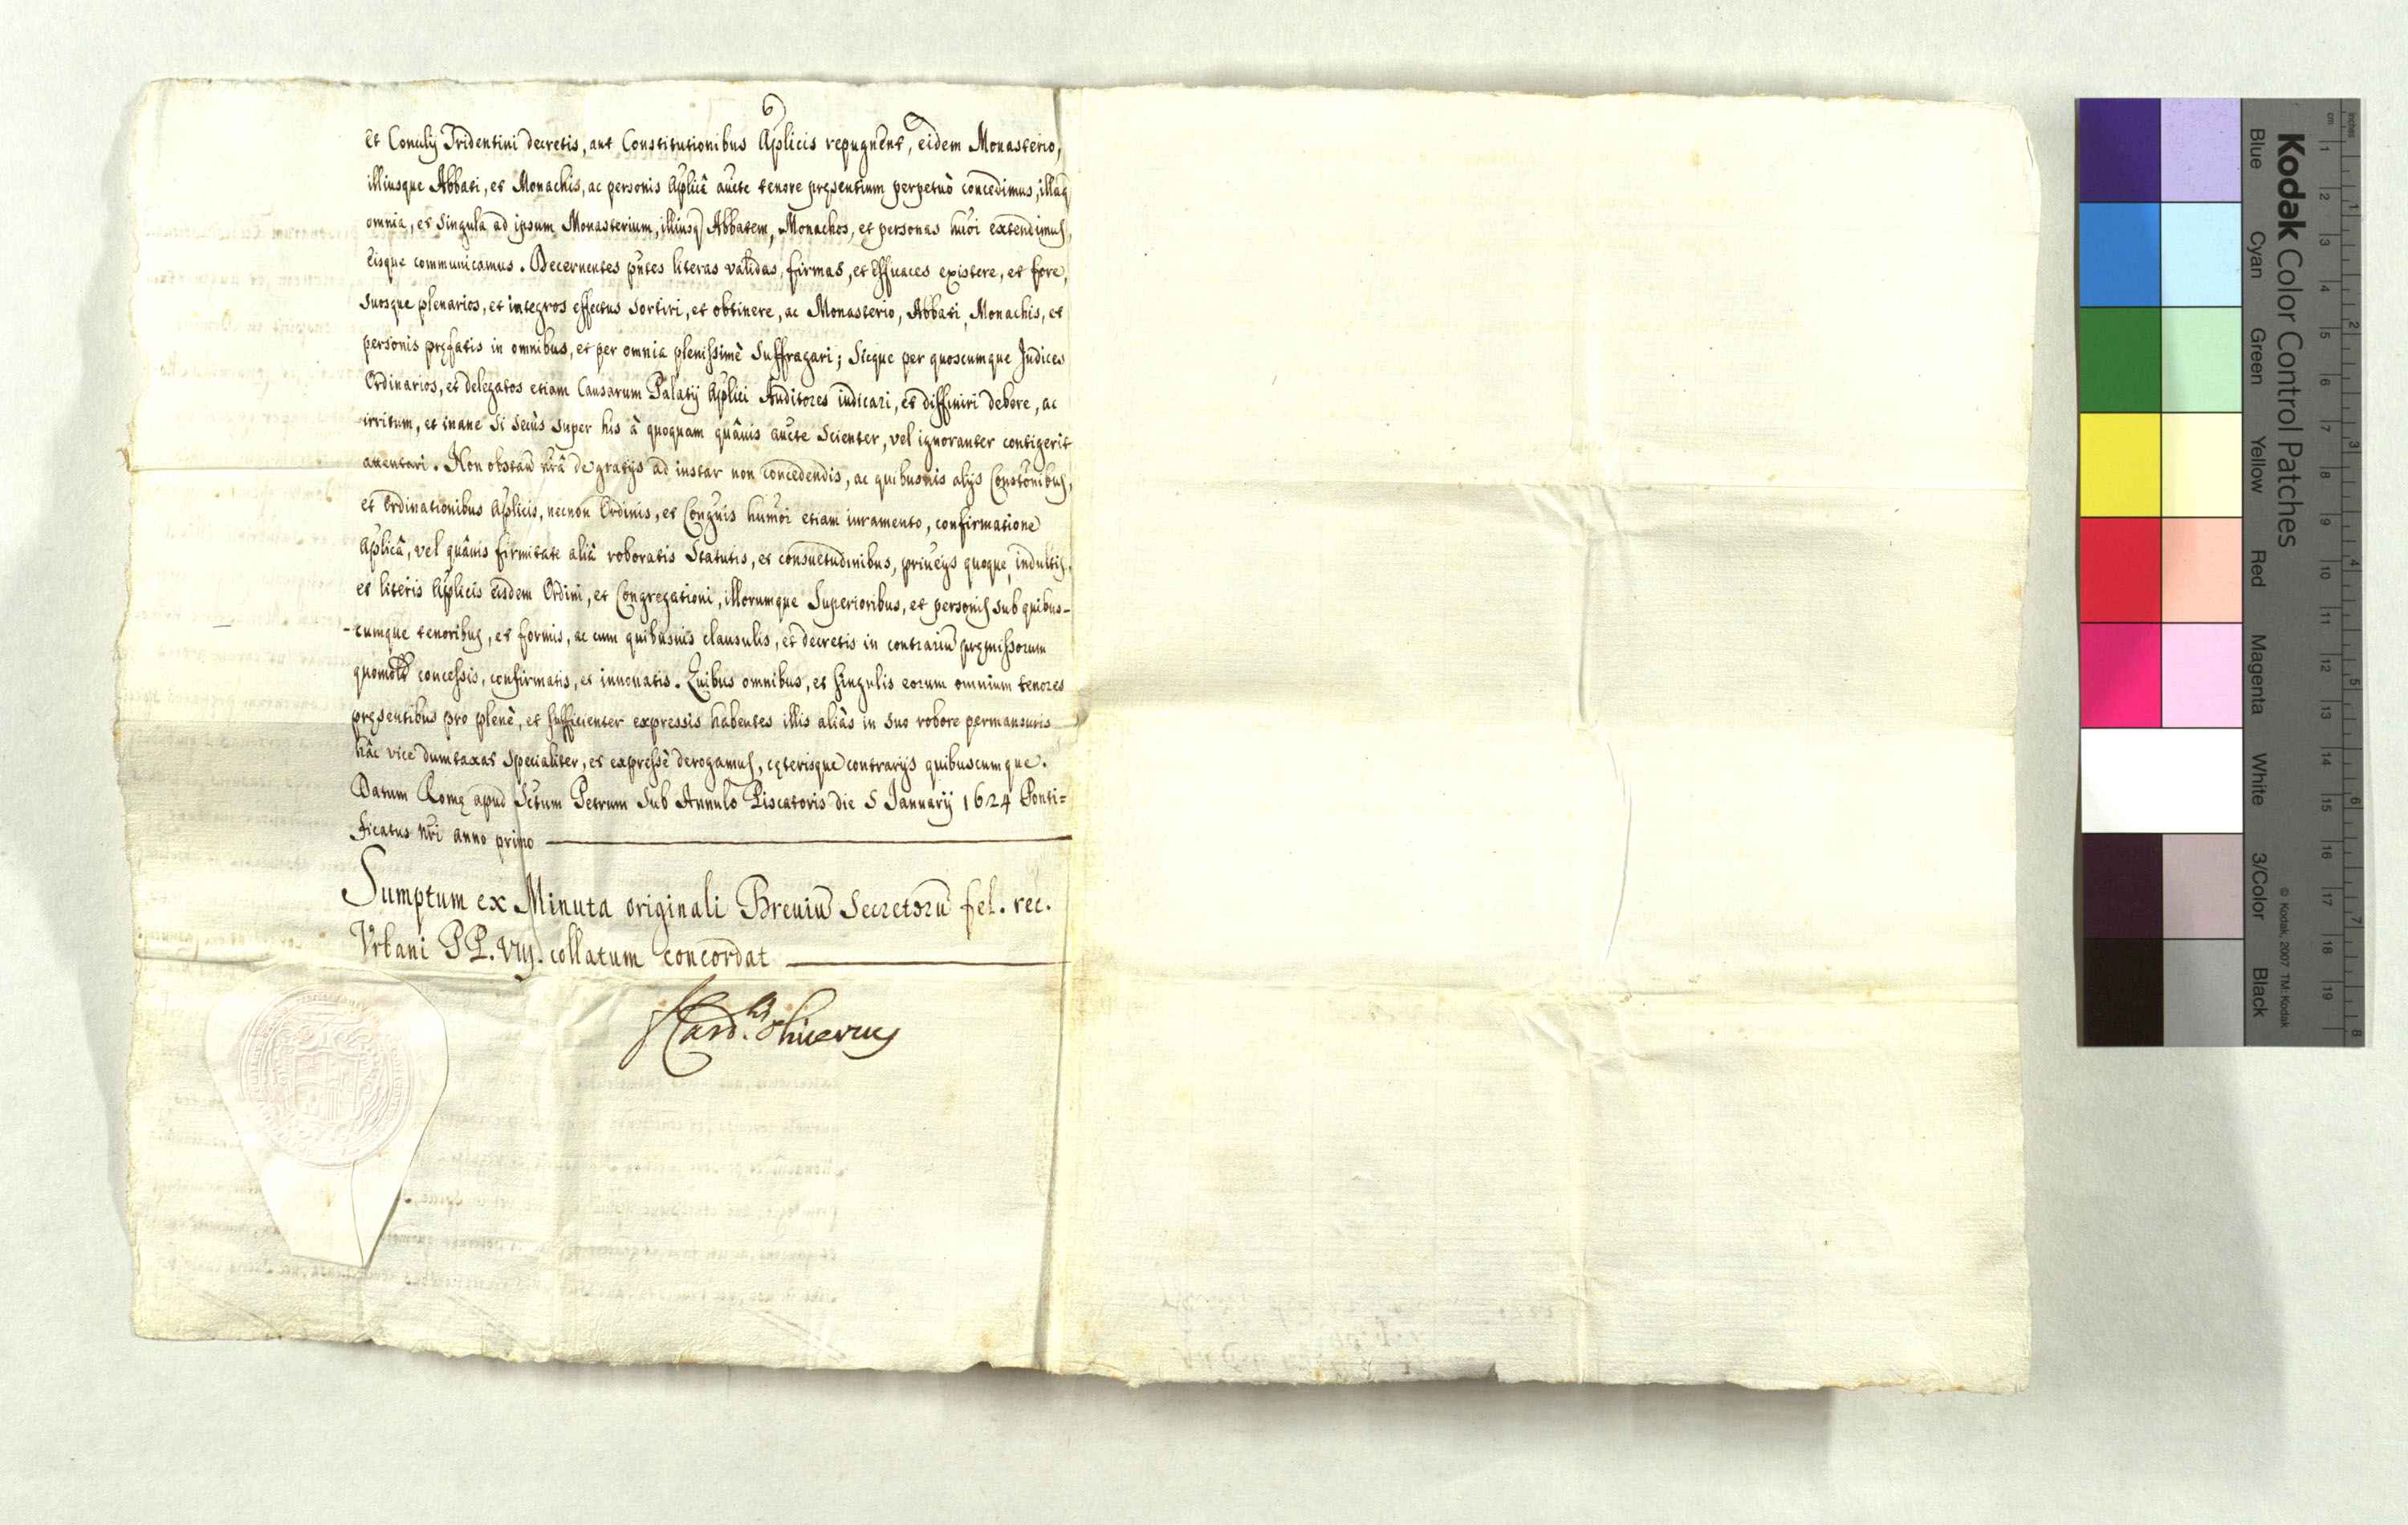 et Concilij Tridentini decretis, aut Constitutionibus Aplicis repugnent, eidem Monasterio,
illiusque Abbati, et Monachis, ac personis Aplicâ aucte tenore pręsentium perpetuò concedimus, illaq
omnia, et singula ad ipsum Monasterium, illiusq Abbatem, Monachos, et personas huoi extendimus,
eisque communicamus. Decernentes pntes literas validas, firmas, et efficaces existere, et fore,
suosque plenarios, et integros effectus sortiri, et obtinere, ac Monasterio, Abbati, Monachis, et
personis pręfatis in omnibus, et per omnia plenissimè suffragari; Sicque per quoscumque Judices
Ordinarios, et delegatos etiam Causarum Palatij Aplici Auditores iudicari, et diffiniri debere, ac
irritum, et inane si secùs super his à quoquam quâuis aucte scienter, vel ignoranter contigerit
attentari. Non obstan nrâ de gratijs ad instar non concedendis, ac quibusuis alijs Constonibus,
et Ordinationibus Aplicis, necnon Ordinis, et Congnis humoi etiam iuramento, confirmatione
Aplicâ, vel quâuis firmitate aliâ roboratis Statutis, et consuetudinibus, priueijs quoque, indultis,
et literis Aplicis eisdem Ordini, et Congregationi, illorumque Superioribus, et personis sub quibus-
-cumque tenoribus, et formis, ac cum quibusuis clausulis, et decretis in contrariu pręmissorum
quomolt concessis, confirmatis, et innouatis. Quibus omnibus, et singulis eorum omnium tenores
pręsentibus pro plenè, et sufficienter expressis habentes illis aliàs in suo robore permansuris
hâc vice dumtaxat specialiter, et expressè derogamus, cęterisque contrarijs quibuscumque.
Datum Romę apud Sctum Petrum sub Annulo Piscatoris die 5 Januarij 1624 Ponti=
ficatus nri anno primo
Sumptum ex Minuta originali Breuiu Secretoru fel. rec.
Vrbani PP. VIIJ. collatum concordat
Card. Oliuerius
Kodak Color Control Patches
Blue Cyan Green Yellow Red Magenta White 3/Color Black
© Kodak, 2007 TM: Kodak
cm 1 2 3 4 5 6 7 8 9 10 11 12 13 14 15 16 17 18 19
inches 1 2 3 4 5 6 7 8